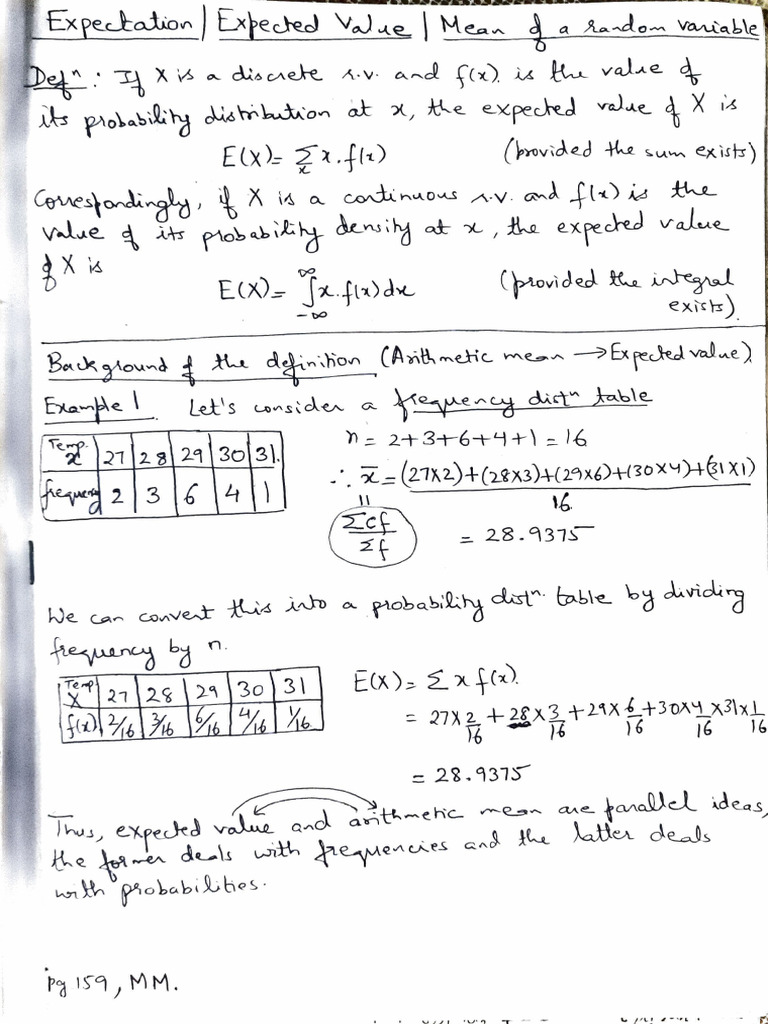 Expectation | Expected Value | Mean of a random variable
Defⁿ: If X is a discrete r.v. and f(x) is the value of
its probability distribution at x, the expected value of X is
E(X) = Σₓ x.f(x) (provided the sum exists)
Correspondingly, if X is a continuous r.v. and f(x) is the
value of its probability density at x, the expected value
of X is
E(X) = ∫_{-∞}^{∞} x.f(x) dx (provided the integral
exists).
Background of the definition (Arithmetic mean → Expected value)
Example 1. Let's consider a frequency distⁿ table
Temp. x 27 28 29 30 31.
frequency 2 3 6 4 1
n = 2+3+6+4+1 = 16
∴ x̄ = (27×2)+(28×3)+(29×6)+(30×4)+(31×1)
16.
॥
Σcf/Σf = 28.9375
We can convert this into a probability distⁿ. table by dividing
frequency by n.
Temp X 27 28 29 30 31
f(x) 2/16 3/16 6/16 4/16 1/16
E(X) = Σ x f(x).
= 27×2/16 + 28×3/16 + 29×6/16 + 30×4/16 × 31×1/16
= 28.9375
Thus, expected value and arithmetic mean are parallel ideas,
the former deals with frequencies and the latter deals
with probabilities.
pg 159, MM.